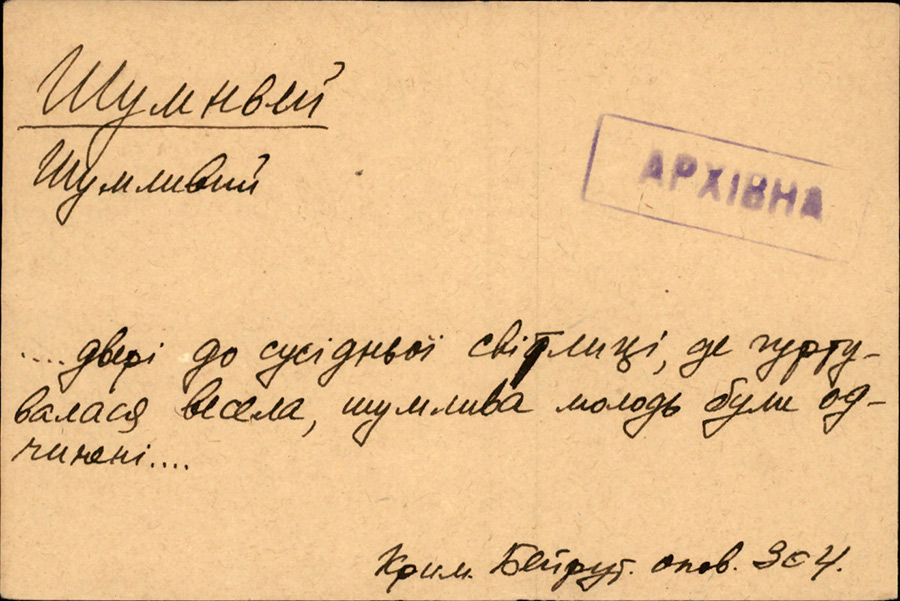 Шумнвий
Шумливий
АРХІВНА
.... двері до сусідньої світлиці, де гурту-
валася весела, шумлива молодь були од-
чинені....
Крим. Бейрут. опов. 304.